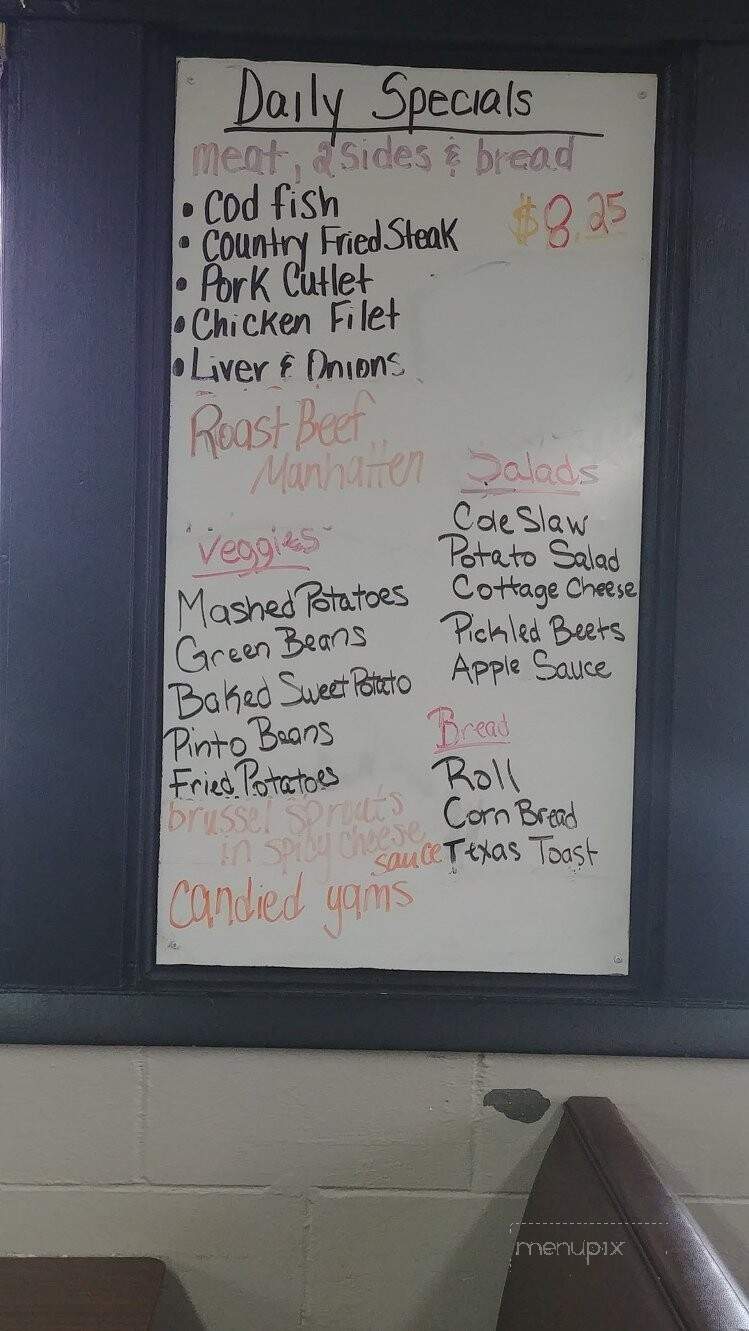 Daily Specials
meat, 2 sides & bread
• Cod fish
$8.25
• Country Fried Steak
• Pork Cutlet
• Chicken Filet
• Liver & Onions
Roast Beef
Manhatten
Veggies
Mashed Potatoes
Green Beans
Baked Sweet Potato
Pinto Beans
Fried Potatoes
brussel sprouts
in spicy cheese
sauce
Candied yams
Salads
Cole Slaw
Potato Salad
Cottage Cheese
Pickled Beets
Apple Sauce
Bread
Roll
Corn Bread
Texas Toast
menupix